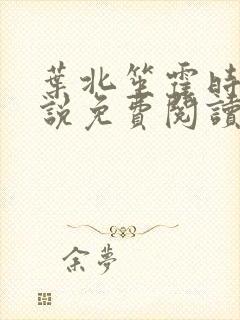 葉北笙霆時
說免費閱讀
余夢